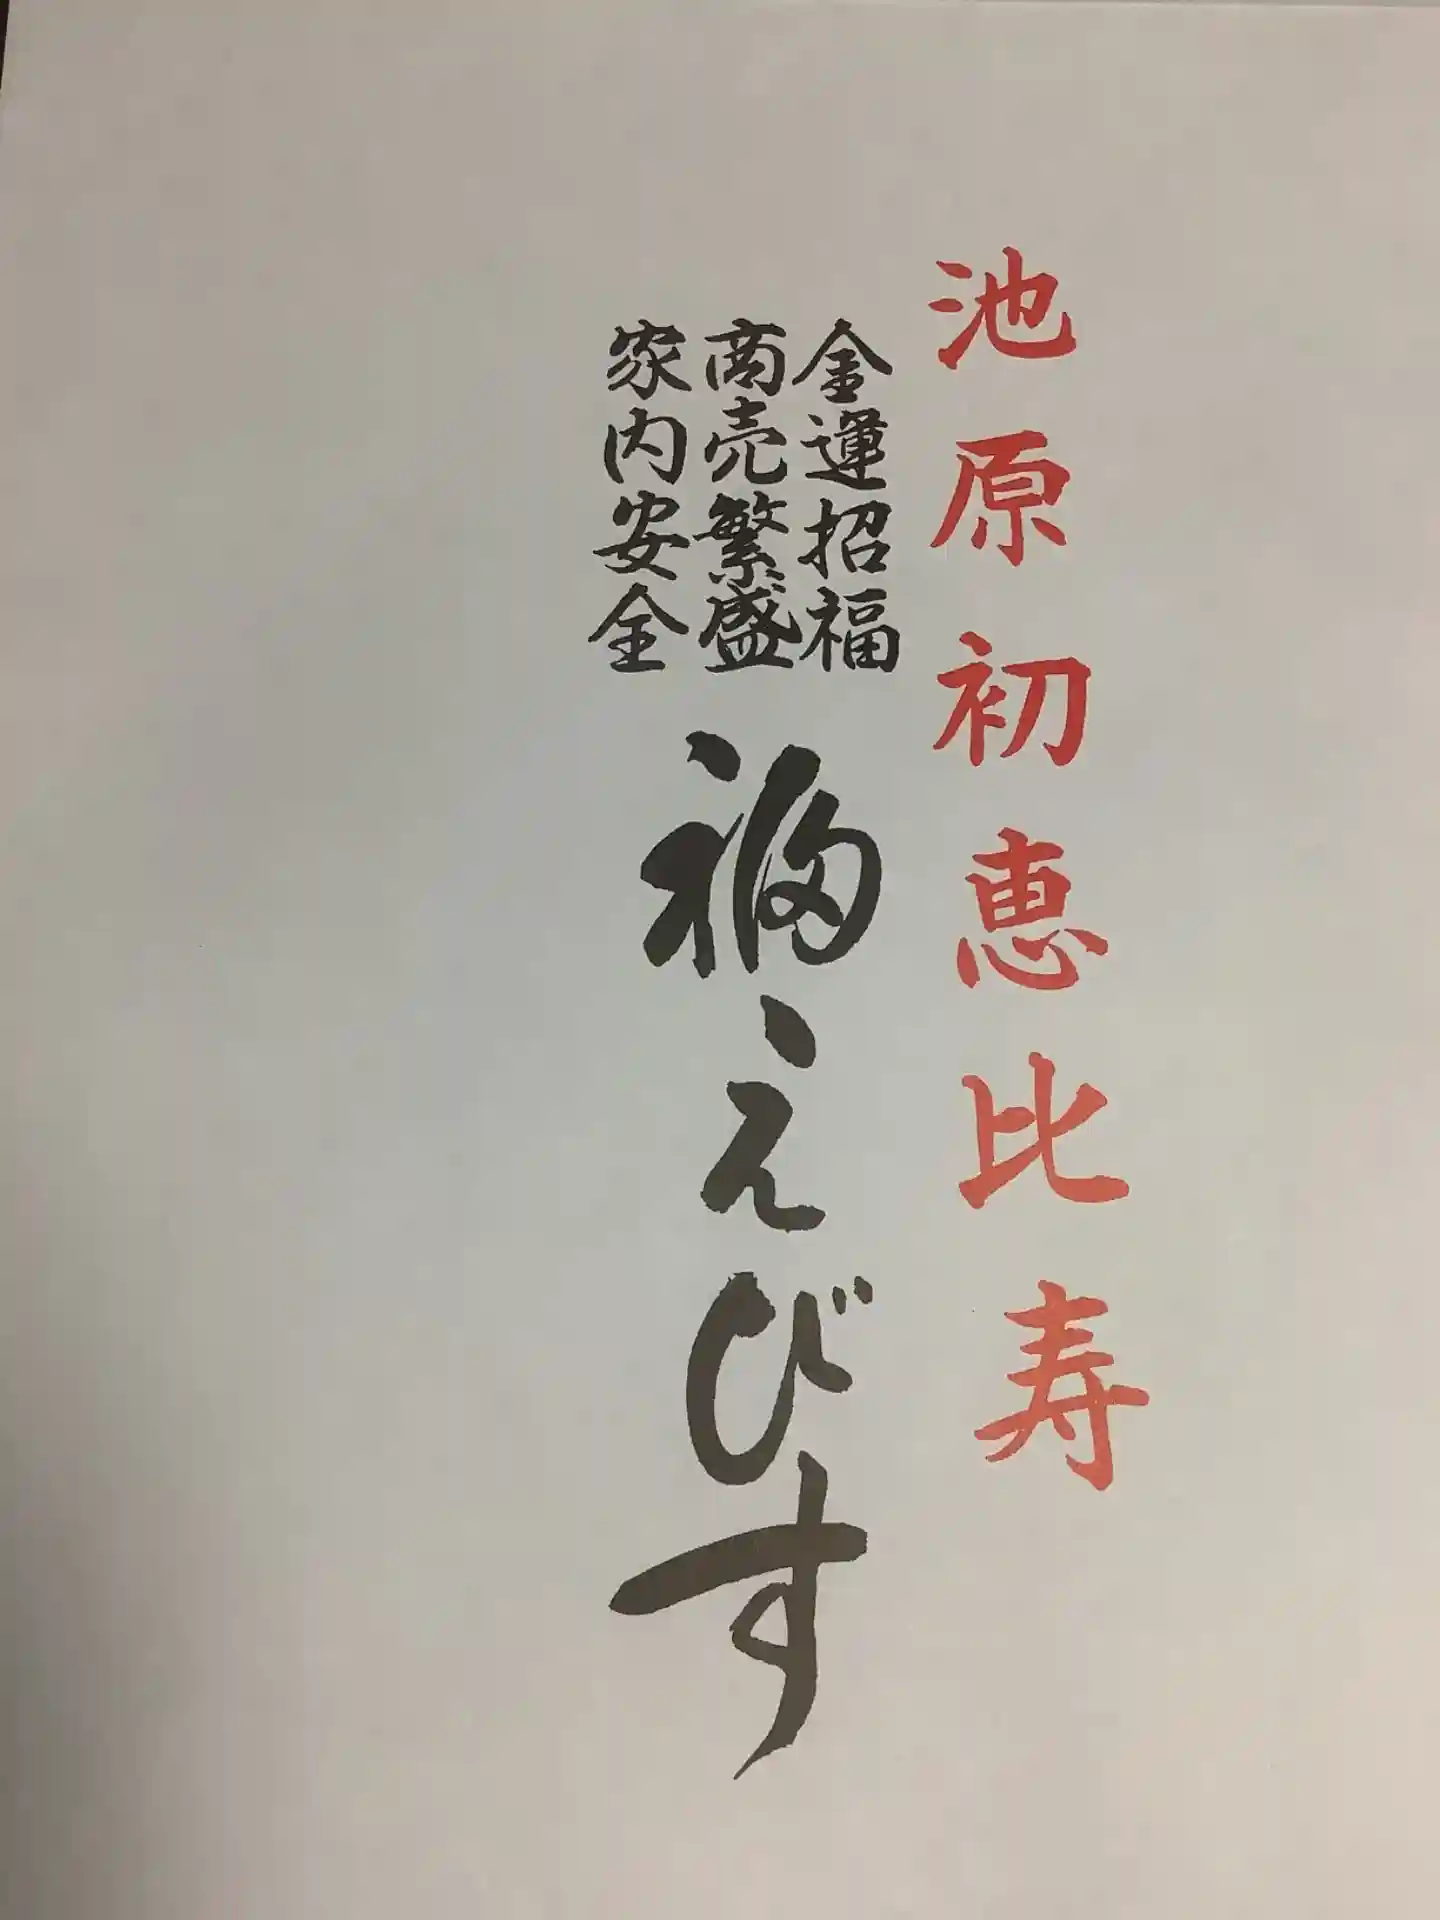 池原初恵比寿
金運招福
商売繁盛
家内安全
福えびす